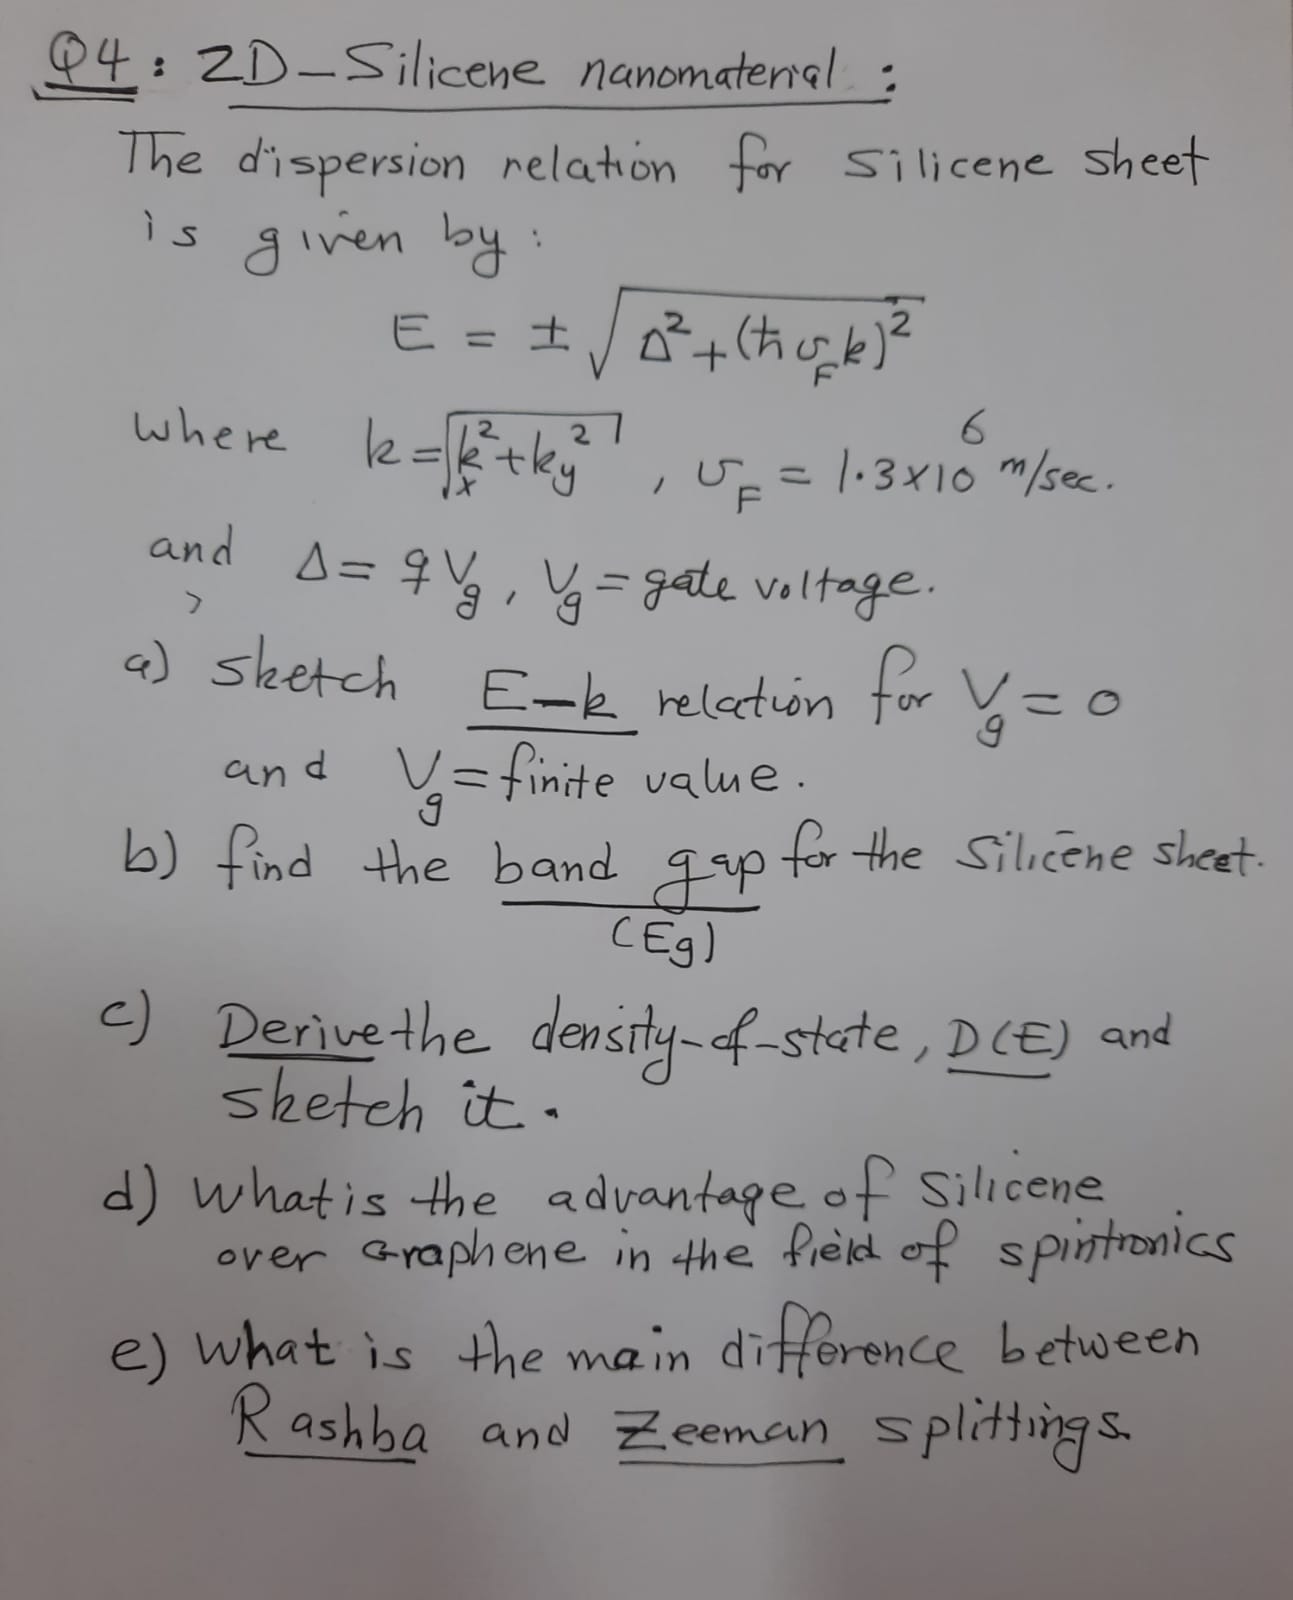 Q4: 2D-Silicene nanomaterial:
The dispersion relation for silicene sheet
is given by:
E = ±√(Δ²+(ħυ_F k)²)
where k=√(k_x²+ky²), υ_F = 1.3×10⁶ m/sec.
and, Δ= qV_g, V_g = gate voltage.
a) sketch E-k relation for V_g = 0
and V_g = finite value.
b) find the band gap for the Silicene sheet.
(Eg)
c) Derive the density-of-state, D(E) and
sketch it.
d) What is the advantage of Silicene
over Graphene in the field of spintronics
e) What is the main difference between
Rashba and Zeeman splittings.